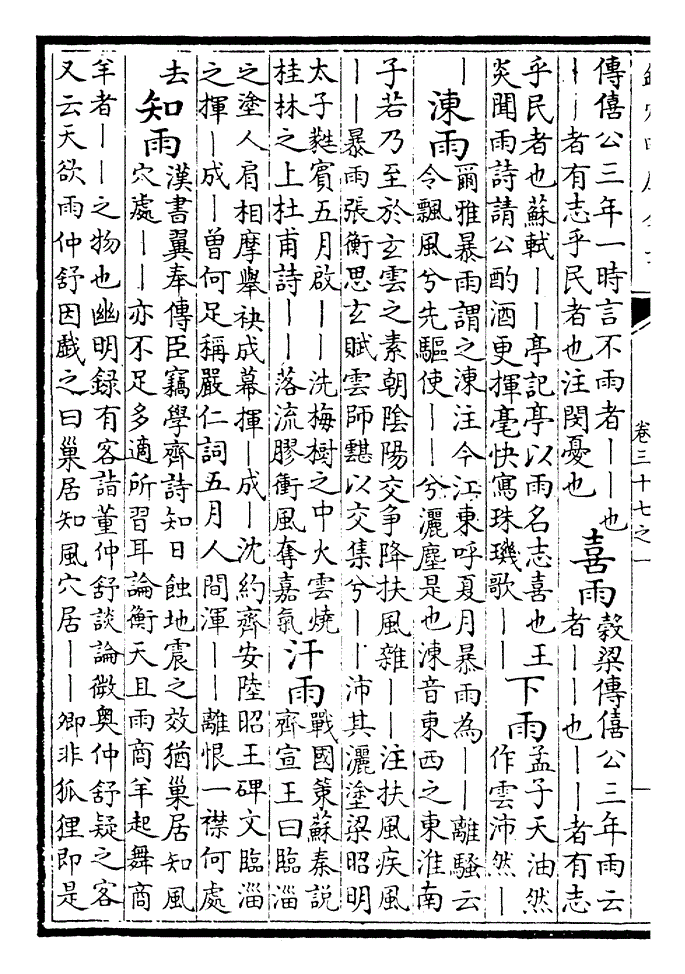 卷三十七之一
傳僖公三年一時言不雨者｜｜也
｜｜者有志乎民者也注閔憂也
喜雨
榖梁傳僖公三年雨云
者｜｜也｜｜者有志
乎民者也蘇軾｜｜亭記亭以雨名志喜也王
炎聞雨詩請公酌酒更揮毫快寫珠璣歌｜｜
下雨
孟子天油然
作雲沛然｜
｜
涷雨
爾雅暴雨謂之涷注今江東呼夏月暴雨為｜｜離騷云
令飄風兮先驅使｜｜兮灑塵是也涷音東西之東淮南
子若乃至於玄雲之素朝陰陽交争降扶風雜｜｜注扶風疾風
｜｜暴雨張衡思玄賦雲師䨴以交集兮｜｜沛其灑塗梁昭明
太子蕤賓五月啟｜｜洗梅樹之中火雲燒
桂林之上杜甫詩｜｜｜落流膠衝風奪嘉氣
汗雨
戰國策蘇秦説
齊宣王曰臨淄
之塗人肩相摩舉袂成幕揮｜成｜沈約齊安陸昭王碑文臨淄
之揮｜成｜曾何足稱嚴仁詞五月人間渾｜｜離恨一襟何處
去
知雨
漢書翼奉傳臣竊學齊詩知日蝕地震之效猶巢居知風
穴處｜｜亦不足多適所習耳論衡天且雨商羊起舞商
羊者｜｜之物也幽明録有客詣董仲舒談論微奥仲舒疑之客
又云天欲雨仲舒因戲之曰巢居知風穴居｜｜卿非狐狸即是